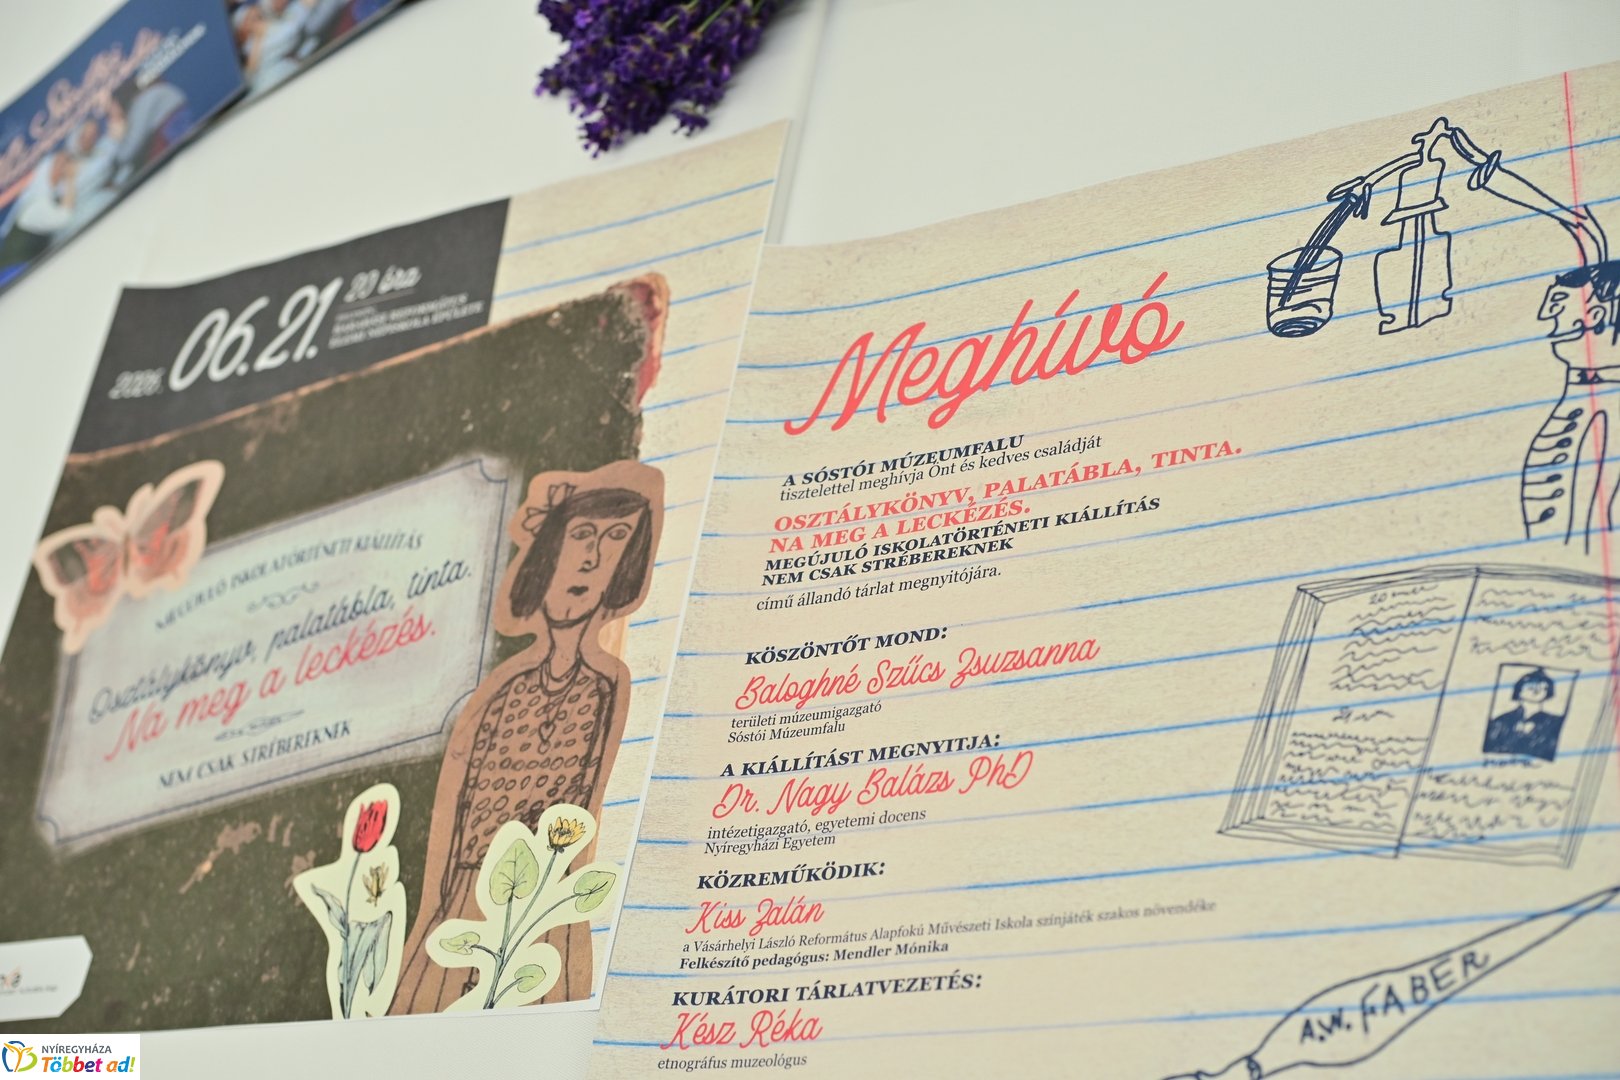 2026. 06.21. 20 óra
MEGÚJULÓ ISKOLATÖRTÉNETI KIÁLLÍTÁS
Osztálykönyv, palatábla, tinta.
Na meg a leckézés.
NEM CSAK STRÉBEREKNEK
Meghívó
A SÓSTÓI MÚZEUMFALU
tisztelettel meghívja Önt és kedves családját
OSZTÁLYKÖNYV, PALATÁBLA, TINTA.
NA MEG A LECKÉZÉS.
MEGÚJULÓ ISKOLATÖRTÉNETI KIÁLLÍTÁS
NEM CSAK STRÉBEREKNEK
című állandó tárlat megnyitójára.
KÖSZÖNTŐT MOND:
Baloghné Szűcs Zsuzsanna
területi múzeumigazgató
Sóstói Múzeumfalu
A KIÁLLÍTÁST MEGNYITJA:
Dr. Nagy Balázs PhD
intézetigazgató, egyetemi docens
Nyíregyházi Egyetem
KÖZREMŰKÖDIK:
Kiss Zalán
a Vásárhelyi László Református Alapfokú Művészeti Iskola színjáték szakos növendéke
Felkészítő pedagógus: Mendler Mónika
KURÁTORI TÁRLATVEZETÉS:
Kész Réka
etnográfus muzeológus
A.W. FABER
NYÍREGYHÁZA
Többet ad!